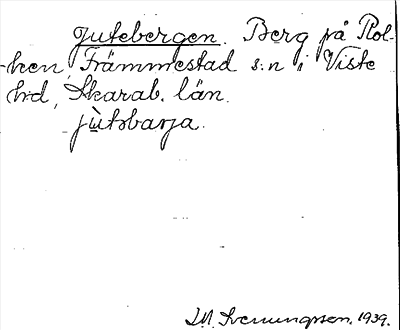 Jutebergen. Berg på Kol-
-ken, Främmestad s:n i Viste
hd, Skarab. län.
jùtəbarja.
I.M. Svenungsson. 1939.